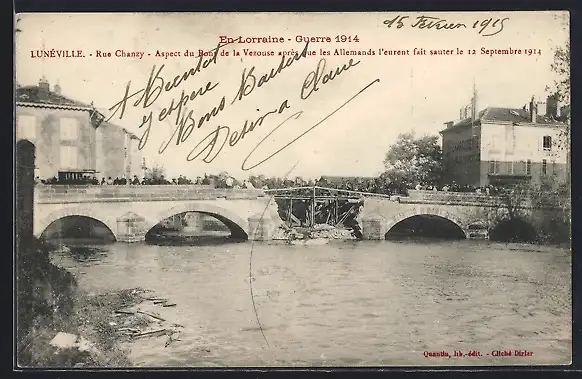 En Lorraine - Guerre 1914
15 Février 1915
LUNÉVILLE. - Rue Chanzy - Aspect du Pont de la Vezouse après que les Allemands l'eurent fait sauter le 12 Septembre 1914
A Bientôt
j'y espère
Bons Baisers
Quantin, lib.-édit. - Cliché Dirler